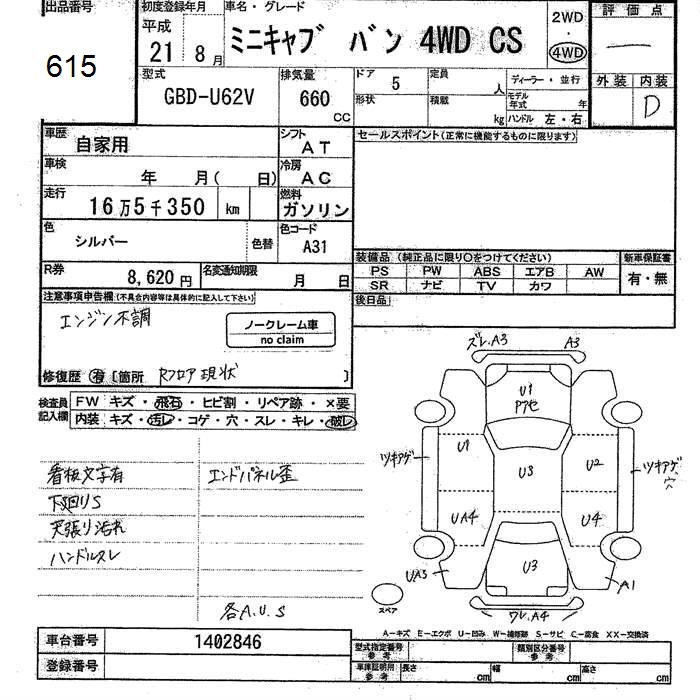 出品番号
615
初度登録年月
平成
21 8月
車名・グレード
ミニキャブ バン 4WD CS
2WD
・
4WD
評価点
外装 内装
D
型式
GBD-U62V
排気量
660
CC
ドア 5
形状
定員 人
積載 kg
ディーラー・並行
モデル年式 年
ハンドル 左・右
車歴
自家用
シフト
AT
セールスポイント(正常に機能するものに限ります)
車検
年 月( 日)
冷房
AC
走行
16万5千350 km
燃料
ガソリン
色
シルバー
色替
色コード
A31
装備品(純正品に限り〇をつけてください)
PS PW ABS エアB AW
SR ナビ TV カワ
新車保証書
有・無
R券
8,620円
名変通知期限
月 日
後日品
注意事項申告欄(不具合内容等は具体的に記入して下さい)
エンジン不調
ノークレーム車
no claim
修復歴 有 [箇所 Rフロア現状 ]
検査員記入欄
FW キズ・飛石・ヒビ割・リペア跡・×要
内装 キズ・汚レ・コゲ・穴・スレ・キレ・破レ
看板文字有
下廻りS
天張り汚れ
ハンドルスレ
エンドパネル歪
各A.U.S
ズレ.A3
A3
U1
アアセ
U1
U3
U2
ツキアゲ
ツキアゲ
穴
UA4
U4
U3
UA3
A1
ワレ.A4
スペア
A－キズ E－エクボ U－凹み W－補修跡 S－サビ C－腐食 XX－交換済
車台番号
1402846
登録番号
型式指定番号
参考
類別区分番号
参考
車庫証明用
参考
長さ cm 幅 cm 高さ cm